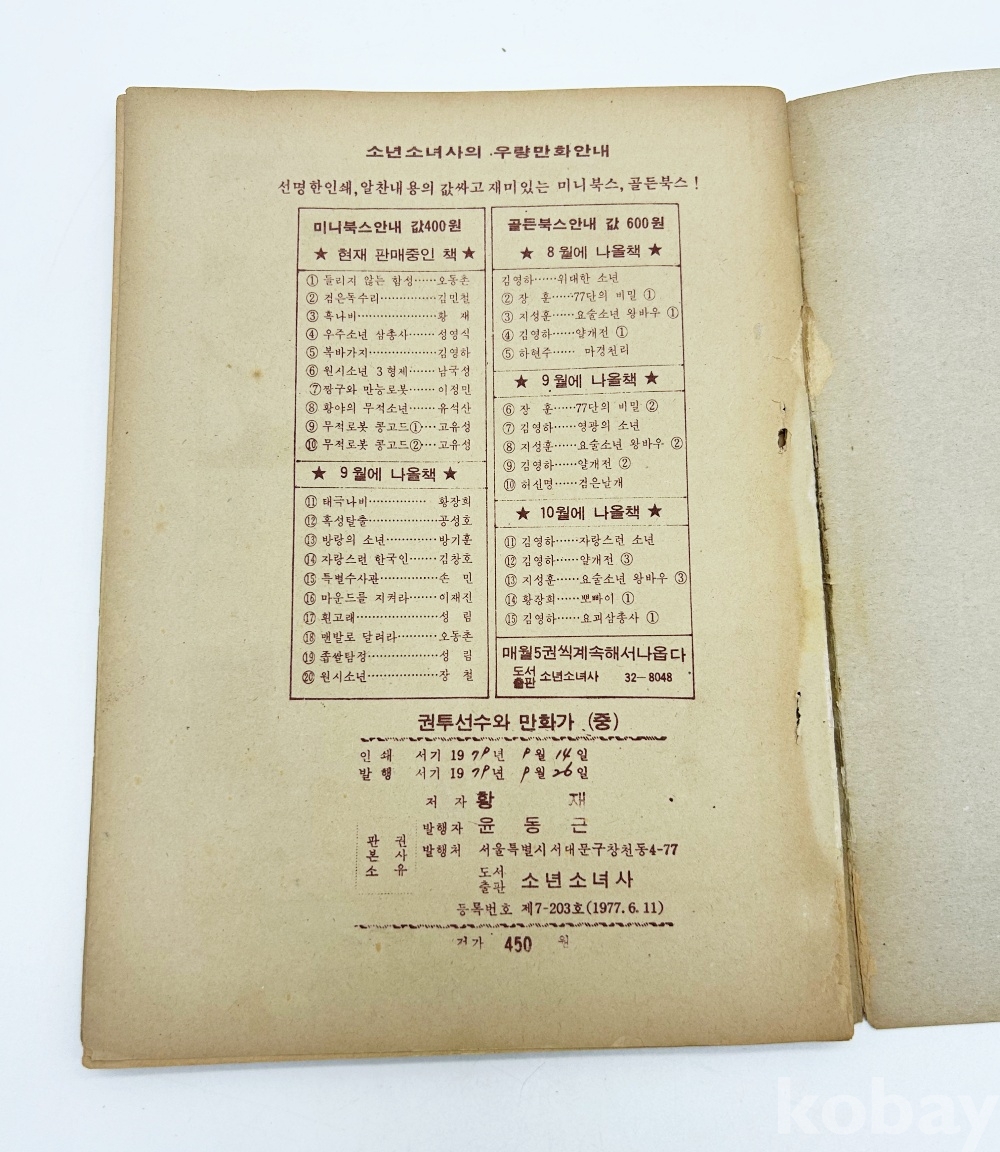 소년소녀사의 우량만화안내
선명한인쇄, 알찬내용의 값싸고 재미있는 미니북스, 골든북스!
미니북스안내 값400원
★ 현재 판매중인 책 ★
① 들리지 않는 함성……오동촌
② 검은독수리……………김민철
③ 흑나비…………………황 재
④ 우주소년 삼총사……성영식
⑤ 복바가지………………김영하
⑥ 원시소년 3형제……남국성
⑦ 짱구와 만능로봇……이정민
⑧ 황야의 무적소년……유석산
⑨ 무적로봇 콩고드①…고유성
⑩ 무적로봇 콩고드②…고유성
★ 9월에 나올책 ★
⑪ 태극나비…………… 황장희
⑫ 혹성탈출………………공성호
⑬ 방랑의 소년…………방기훈
⑭ 자랑스런 한국인……김창호
⑮ 특별수사관……………손 민
⑯ 마운드를 지켜라……이재진
⑰ 흰고래…………………성 림
⑱ 맨발로 달려라………오동촌
⑲ 좁쌀탐정………………성 림
⑳ 원시소년………………장 철
골든북스안내 값 600원
★ 8월에 나올책 ★
김영하……위대한 소년
② 장 훈……77단의 비밀 ①
③ 지성훈……요술소년 왕바우 ①
④ 김영하……얄개전 ①
⑤ 하현주…… 마경천리
★ 9월에 나올책 ★
⑥ 장 훈……77단의 비밀 ②
⑦ 김영하……영광의 소년
⑧ 지성훈……요술소년 왕바우 ②
⑨ 김영하……얄개전 ②
⑩ 허신명……검은날개
★ 10월에 나올책 ★
⑪ 김영하……자랑스런 소년
⑫ 김영하……얄개전 ③
⑬ 지성훈……요술소년 왕바우 ③
⑭ 황장희……뽀빠이 ①
⑮ 김영하……요괴삼총사 ①
매월5권씩계속해서나옵다
도서출판 소년소녀사 32-8048
권투선수와 만화가 (중)
인 쇄 서기 1979년 9월 14일
발 행 서기 1979년 9월 26일
저 자 황 재
발행자 윤 동 근
판 권
본 사
소 유
발행처 서울특별시서대문구창천동4-77
도서출판 소년소녀사
등록번호 제7-203호(1977.6.11)
정가 450 원
kobay